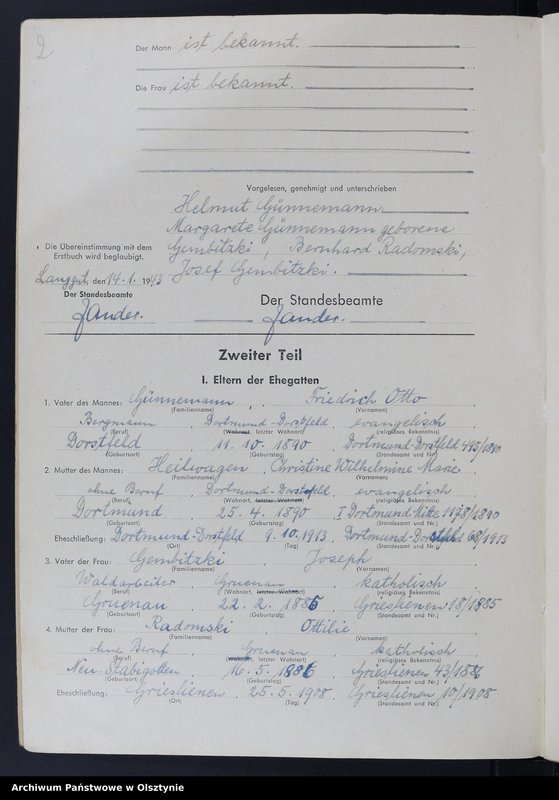 2
Der Mann ist bekannt.
Die Frau ist bekannt.
Vorgelesen, genehmigt und unterschrieben
Helmut Günnemann
Margarete Günnemann geborene
Gembitzki, Bernhard Radomski,
Josef Gembitzki.
Die Übereinstimmung mit dem
Erstbuch wird beglaubigt.
Langgut, den 14.1. 1943
Der Standesbeamte
Der Standesbeamte
Zander.
Zander.
Zweiter Teil
I. Eltern der Ehegatten
1. Vater des Mannes: Günnemann, Friedrich Otto
(Familienname) (Vornamen)
Bergmann, Dortmund-Dorstfeld, evangelisch
(Beruf) (Wohnort, letzter Wohnort) (religiöses Bekenntnis)
Dorstfeld 11.10.1890, Dortmund-Dorstfeld 495/1890
(Geburtsort) (Geburtstag) (Standesamt und Nr.)
2. Mutter des Mannes: Heilwagen, Christine Wilhelmine Marie
(Familienname) (Vornamen)
ohne Beruf, Dortmund-Dorstfeld, evangelisch
(Beruf) (Wohnort, letzter Wohnort) (religiöses Bekenntnis)
Dortmund 25.4.1890 I Dortmund-Mitte 1198/1890
(Geburtsort) (Geburtstag) (Standesamt und Nr.)
Eheschließung: Dortmund-Dorstfeld 9.10.1913, Dortmund-Dorstfeld 68/1913
(Ort) (Tag) (Standesamt und Nr.)
3. Vater der Frau: Gembitzki, Joseph
(Familienname) (Vornamen)
Waldarbeiter, Gruenau, katholisch
(Beruf) (Wohnort, letzter Wohnort) (religiöses Bekenntnis)
Gruenau 22.2.1885 Grieslienen 18/1885
(Geburtsort) (Geburtstag) (Standesamt und Nr.)
4. Mutter der Frau: Radomski, Ottilie
(Familienname) (Vornamen)
ohne Beruf, Gruenau, katholisch
(Beruf) (Wohnort, letzter Wohnort) (religiöses Bekenntnis)
Neu-Stabigotten 16.5.1886 Grieslienen 43/1886
(Geburtsort) (Geburtstag) (Standesamt und Nr.)
Eheschließung: Grieslienen, 25.5.1908, Grieslienen 10/1908
(Ort) (Tag) (Standesamt und Nr.)
Archiwum Państwowe w Olsztynie